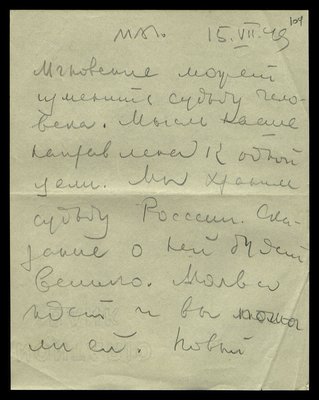 104
15.VII.49
Мгновение может
изменить судьбу чело-
века. Мысль наша
направлена к одной
цели. Мы храним
судьбу России. Ска-
зание о ней будет
Велико. Молва
идет и вы
ли ей. Новый